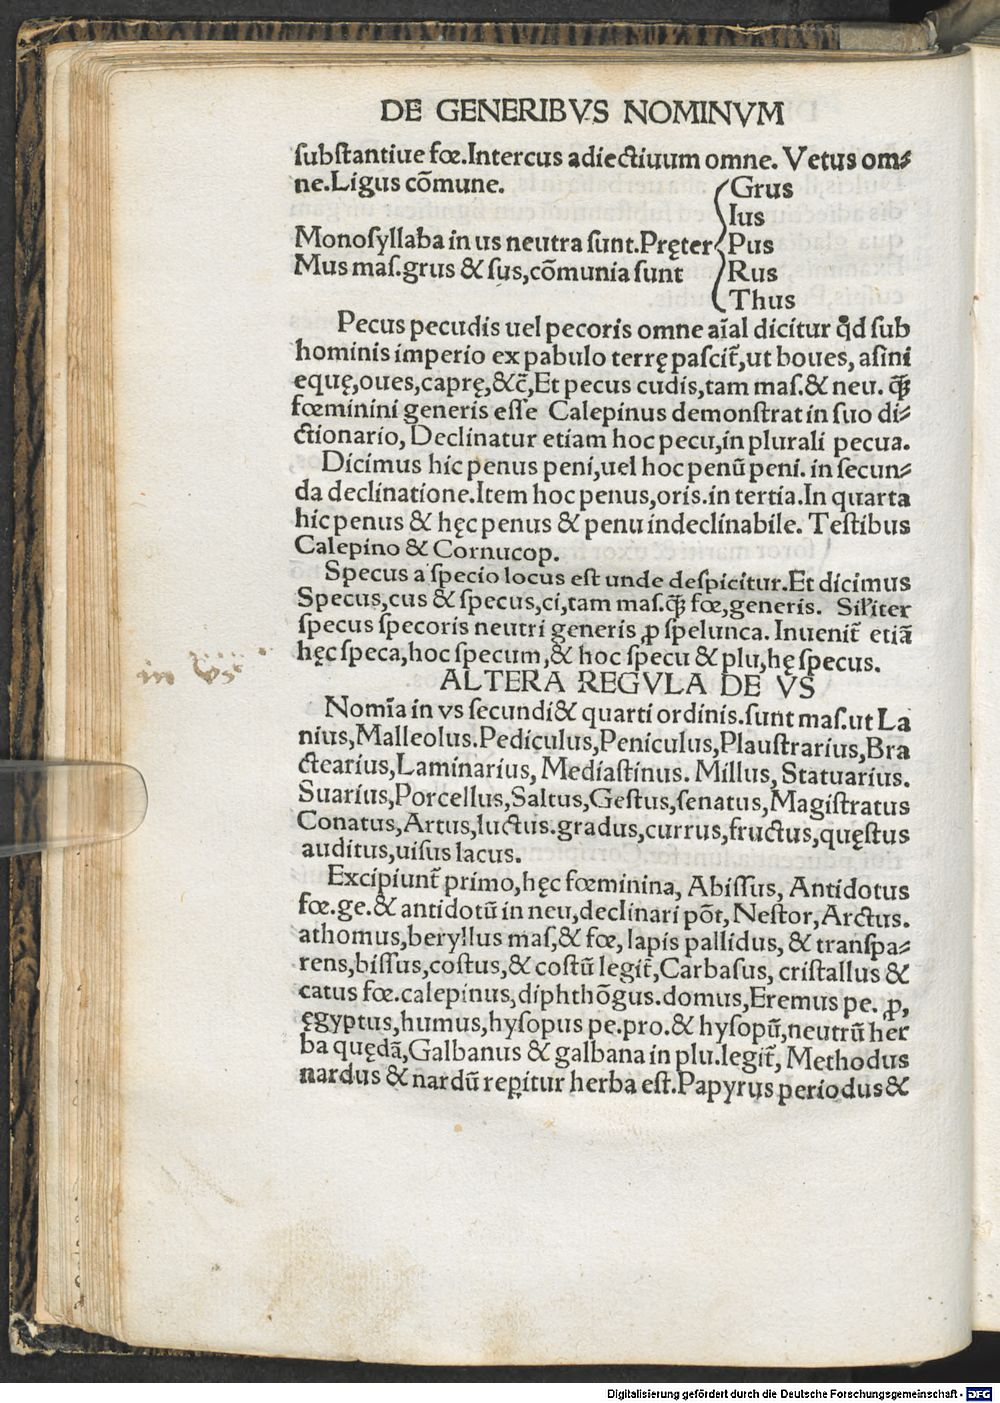 DE GENERIBVS NOMINVM
ſubſtantiue fœ.Intercus adiectiuum omne. Vetus om⸗
ne.Ligus cõmune.
Grus
Ius
Monoſyllaba in us neutra ſunt.Pręter Pus
Mus maſ.grus & ſus,cõmunia ſunt Rus
Thus
Pecus pecudis uel pecoris omne aĩal dicitur qd ſub
hominis imperio ex pabulo terrę paſcit̃,ut boues, aſini
equę,oues,caprę,&c̃,Et pecus cudis,tam maſ.& neu. q̃ꝫ
fœminini generis eſſe Calepinus demonſtrat in ſuo di⸗
ctionario, Declinatur etiam hoc pecu,in plurali pecua.
Dicimus hic penus peni,uel hoc penũ peni. in ſecun⸗
da declinatione.Item hoc penus,oris.in tertia.In quarta
hic penus & hęc penus & penu indeclinabile. Teſtibus
Calepino & Cornucop.
Specus a ſpecio locus eſt unde deſpicitur.Et dicimus
Specus,cus & ſpecus,ci,tam maſ.q̃ꝫ fœ,generis. Siľiter
ſpecus ſpecoris neutri generis ꝓ ſpelunca. Inuenit̃ etiã
hęc ſpeca,hoc ſpecum,& hoc ſpecu & plu,hę ſpecus.
in vs
ALTERA REGVLA DE VS
Nomĩa in vs ſecundi& quarti ordinis.ſunt maſ.ut La
nius,Malleolus.Pediculus,Peniculus,Plauſtrarius,Bra
ctearius,Laminarius, Mediaſtinus. Millus, Statuarius.
Suarius,Porcellus,Saltus,Geſtus,ſenatus,Magiſtratus
Conatus,Artus,luctus.gradus,currus,fructus,quęſtus
auditus,uiſus lacus.
Excipiunt̃ primo,hęc fœminina, Abiſſus, Antidotus
fœ.ge.& antidotũ in neu,declinari põt, Neſtor,Arctus.
athomus,beryllus maſ,& fœ, lapis pallidus, & tranſpa⸗
rens,biſſus,coſtus,& coſtũ legit̃,Carbaſus, criſtallus &
catus fœ.calepinus,diphthõgus.domus,Eremus pe. ꝓ,
ęgyptus,humus,hyſopus pe.pro.& hyſopũ,neutrũ her
ba quędã,Galbanus & galbana in plu.legit̃, Methodus
nardus & nardũ reꝑitur herba eſt.Papyrus periodus &
Digitalisierung gefördert durch die Deutsche Forschungsgemeinschaft - DFG